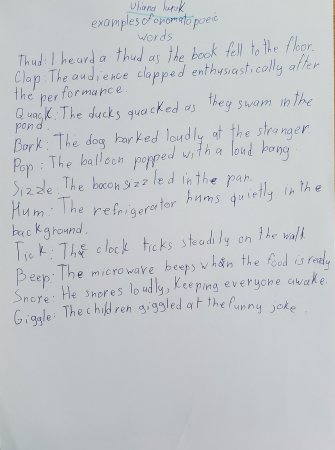 Uliana Lupok
examples of onomatopoeic
words
Thud: I heard a thud as the book fell to the floor.
Clap: The audience clapped enthusiastically after
the performance.
Quack: The ducks quacked as they swam in the
pond.
Bark: The dog barked loudly at the stranger.
Pop: The balloon popped with a loud bang.
Sizzle: The bacon sizzled in the pan.
Hum: The refrigerator hums quietly in the
background.
Tick: The clock ticks steadily on the wall.
Beep: The microwave beeps when the food is ready
Snore: He snores loudly, keeping everyone awake.
Giggle: The children giggled at the funny joke.